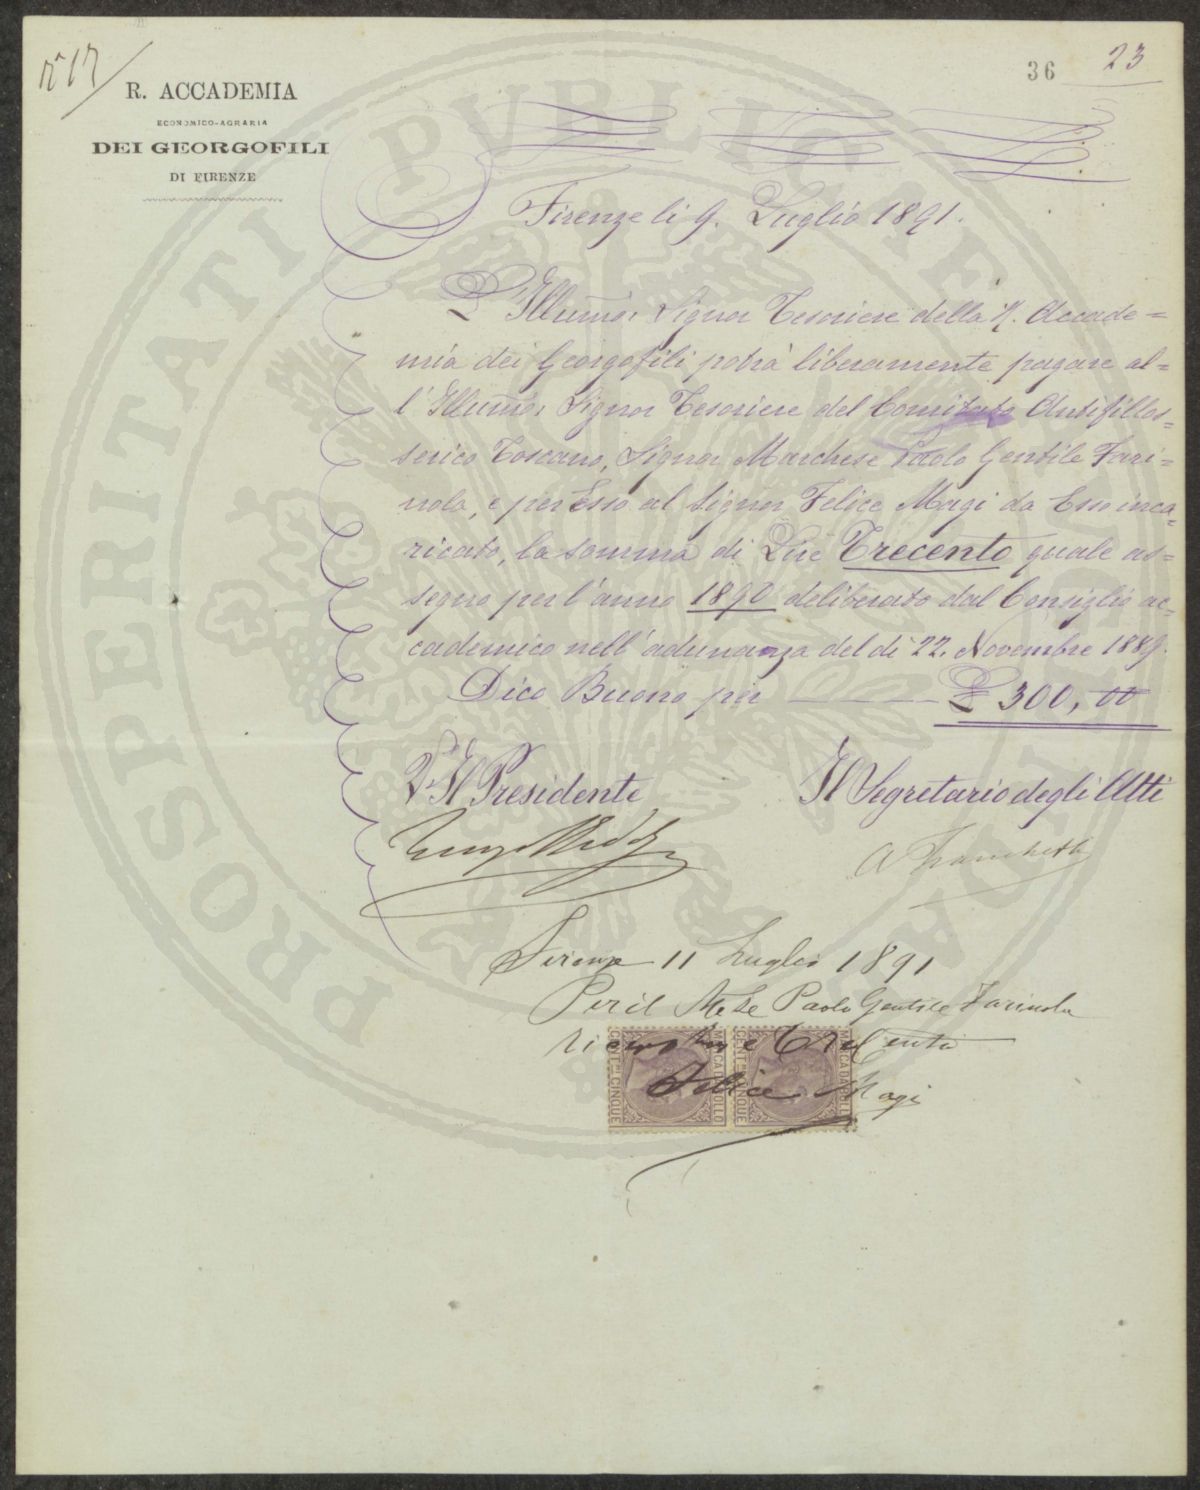 N° 17
R. ACCADEMIA
ECONOMICO-AGRARIA
DEI GEORGOFILI
DI FIRENZE
36 23
Firenze li 9. Luglio 1891.
L'Illumo: Signor Tesoriere della R. Accade=
mia dei Georgofili potrà liberamente pagare al=
l'Illumo: Signor Tesoriere del Comitato Antifillos=
serico Toscano, Signor Marchese Paolo Gentile Fari=
nola, e per Esso al Signor Felice Magi da Esso inca=
ricato, la somma di Lire Trecento quale as=
segno per l'anno 1890 deliberato dal Consiglio ac=
cademico nell'adunanza del dì 22. Novembre 1889.
Dico Buono per £ 300,00
V° Il Presidente Il Segretario degli Atti
A Franchetti
Firenze 11 Luglio 1891
Per il Mse Paolo Gentile Farinola
Lire Trecento
Felice Magi
MARCA DA BOLLO
CENT.MI CINQUE
MARCA DA BOLLO
CENT.MI CINQUE
PROSPERITATI PVBLICAE AVGENDAE